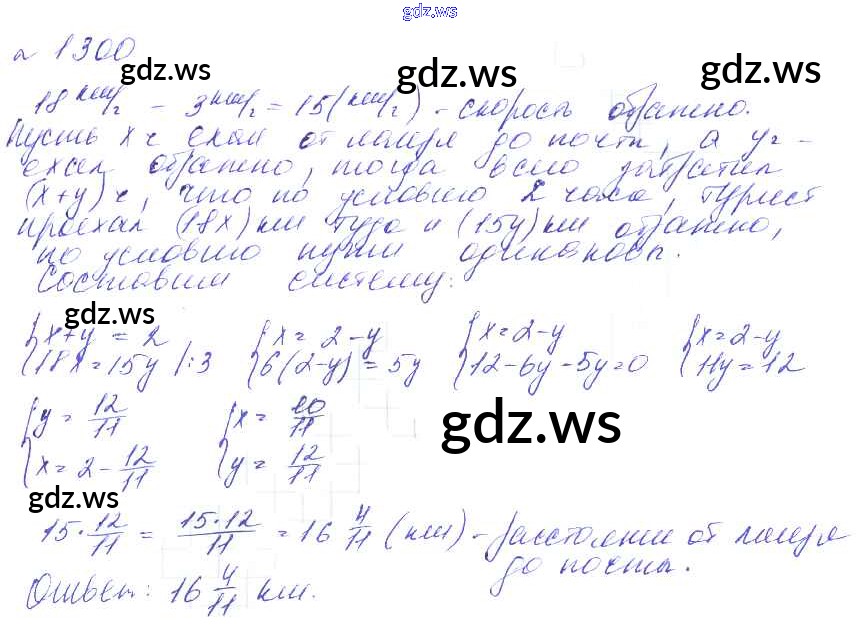 gdz.ws
№ 1300
gdz.ws gdz.ws gdz.ws
18 км/ч - 3 км/ч = 15 (км/ч) - скорость обратно.
Пусть x ч ехал от лагеря до почты, а y ч -
ехал обратно, тогда всего затратил
(x+y) ч, что по условию 2 часа, турист
проехал (18x) км туда и (15y) км обратно,
по условию пути одинаковы.
Составим систему:
gdz.ws
{x+y = 2 {x = 2-y {x=2-y {x=2-y
{18x=15y |:3 {6(2-y) = 5y {12-6y-5y=0 {11y=12
{y = 12/11 {x = 10/11
gdz.ws
{x = 2 - 12/11 {y = 12/11
gdz.ws
15·12/11 = 15·12/11 = 16 4/11 (км) - расстояние от лагеря
до почты.
Ответ: 16 4/11 км.